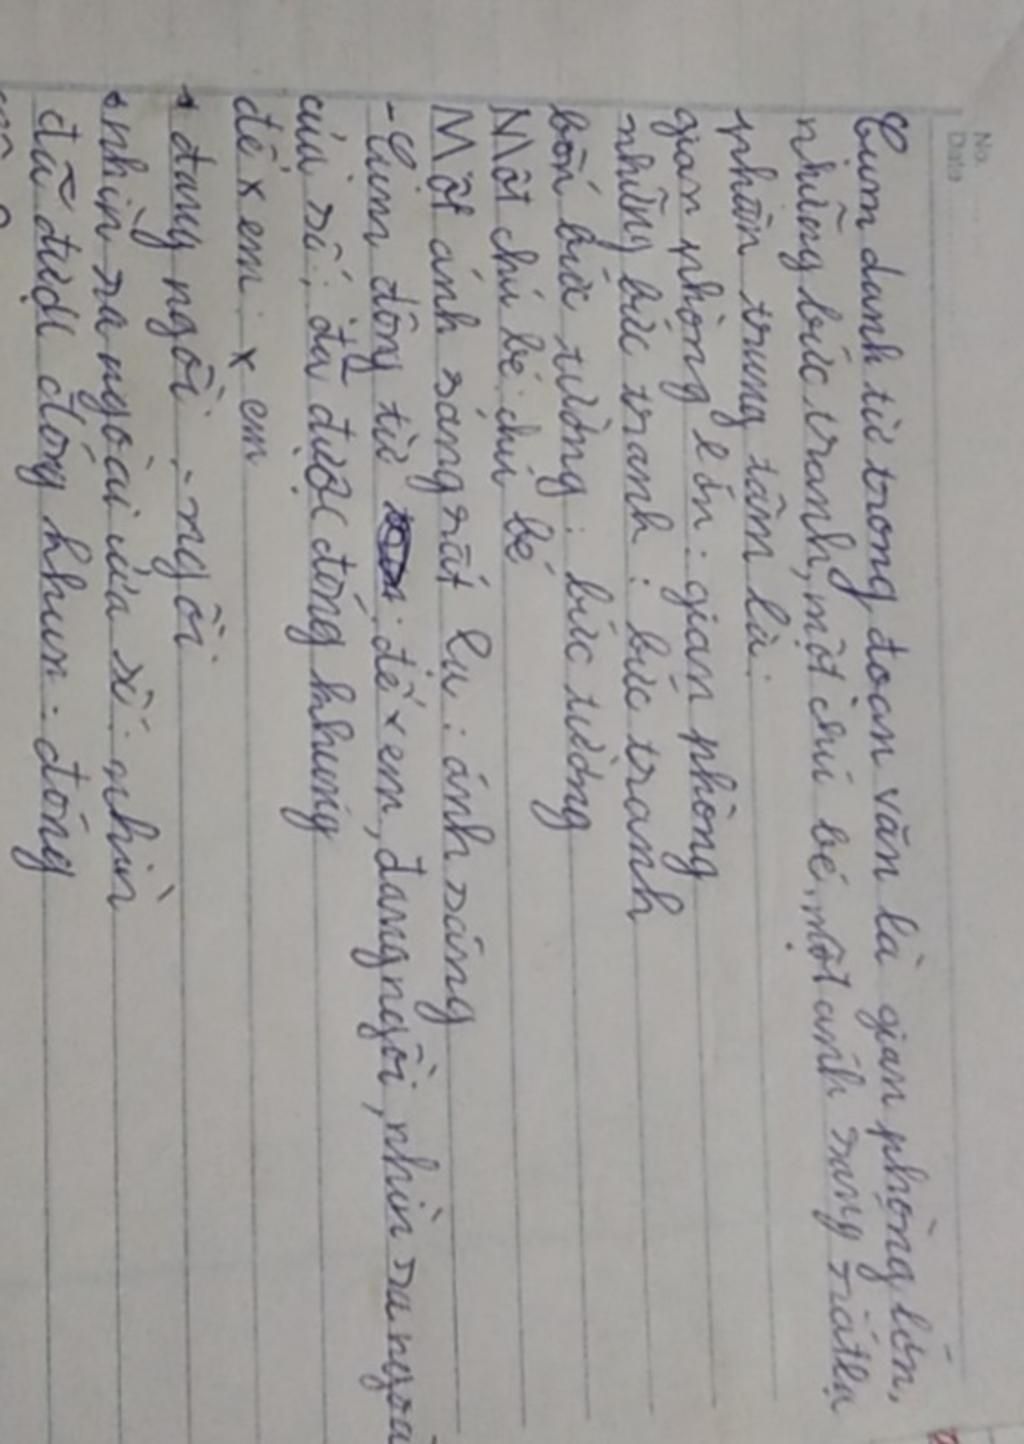 No.
Date
Cụm danh từ trong đoạn văn là gian phòng lớn,
những bức tranh, một chú bé, một ánh sáng rất lạ
phần trung tâm là:
gian phòng lớn: gian phòng
những bức tranh: bức tranh
bốn bức tường: bức tường
Một chú bé: chú bé
Một ánh sáng rất lạ: ánh sáng
- Cụm động từ: để xem, đang ngồi, nhìn ra ngoài
cửa sổ; đã được đóng khung
để xem: xem
+ đang ngồi: ngồi
+ nhìn ra ngoài cửa sổ: nhìn
đã được đóng khun: đóng